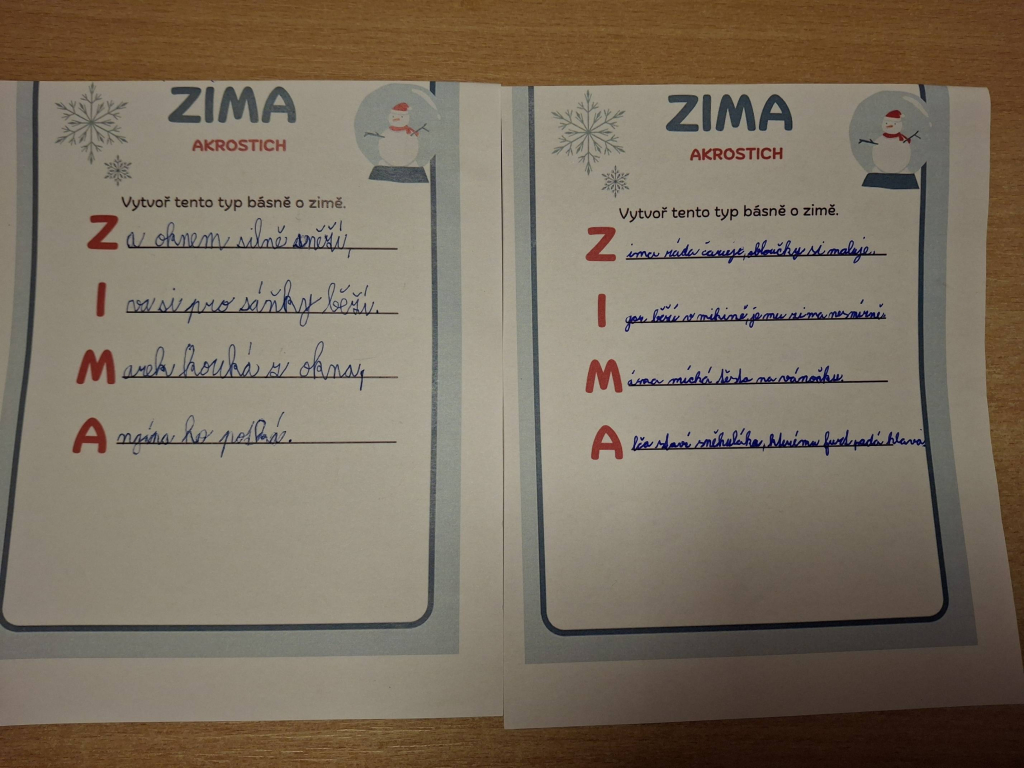 ZIMA
AKROSTICH
Vytvoř tento typ básně o zimě.
Za oknem silně sněží,
Iva si pro sáňky běží.
Marek kouká z okna,
Angína ho potká.
ZIMA
AKROSTICH
Vytvoř tento typ básně o zimě.
Zima ráda čaruje, obloučky si maluje.
Igor běží v mikině, je mu zima nesmírně.
Míma míchá těsto na vánočku.
Alča staví sněhuláka, kterému furt padá hlava.